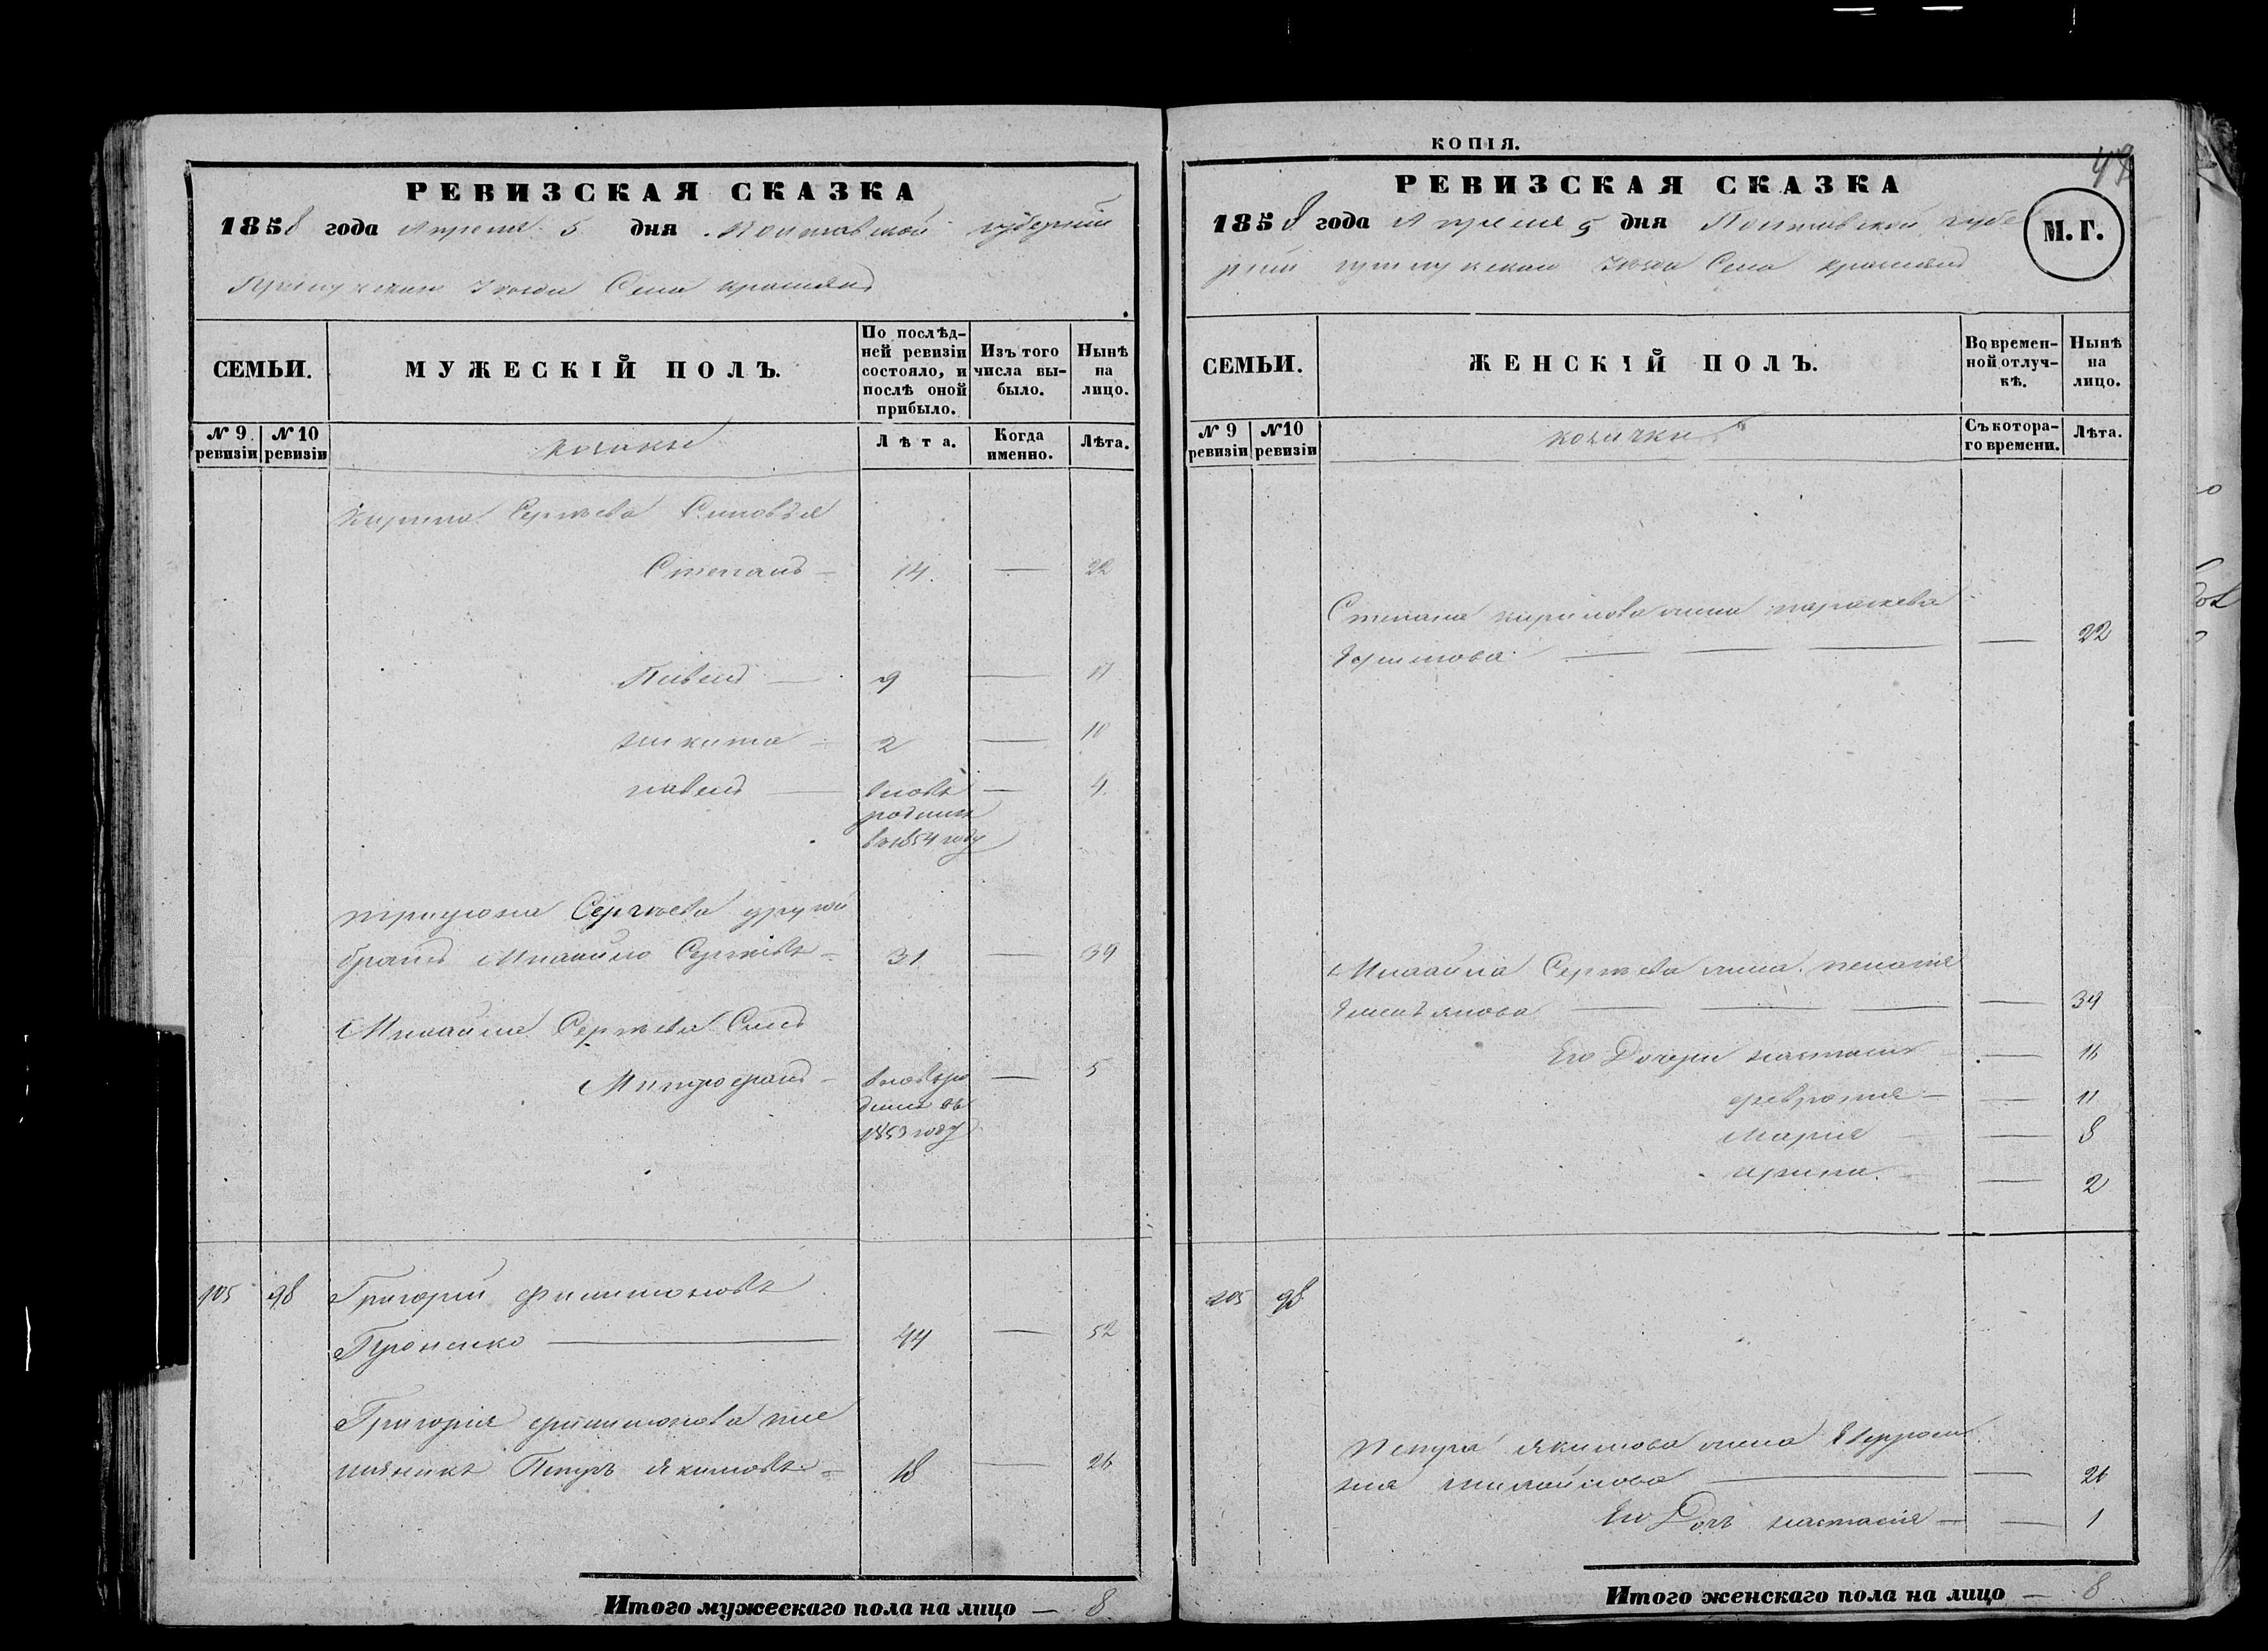 РЕВИЗСКАЯ СКАЗКА
1858 года Апреля 5 дня Полтавской губернии
Прилуцкаго Уезда Села
СЕМЬИ.
МУЖЕСКІЙ ПОЛЪ.
По послѣд-
ней ревизіи
состояло, и
послѣ оной
прибыло.
Изъ того
числа вы-
было.
Нынѣ
на
лицо.
№ 9
ревизіи
№ 10
ревизіи
козаки
Лѣта.
Когда
именно.
Лѣта.
Кирила Сергѣева Сыновья
Степанъ — 14. — 22
9 — 17
никита — 2 — 10
павелъ — вновь — 4.
родился
въ 1854 году
Сергѣева другой
братъ Михайло Сергѣевъ — 31 — 39
Михайла Сергѣева Сынъ
Митрофанъ — вновь ро — 5
дился въ
1853 году
105 98 Григорій Филимоновъ
44 — 52
Григорія Филимонова пле
мяникъ Петръ Якимовъ — 18 — 26
Итого мужескаго пола на лицо — 8.
КОПІЯ.
49
РЕВИЗСКАЯ СКАЗКА
1858 года Апреля 5 дня Полтавской губе
рніи прилуцкаго Уезда Села
М. Г.
СЕМЬИ.
ЖЕНСКІЙ ПОЛЪ.
Во времен-
ной отлуч-
кѣ.
Нынѣ
на
лицо.
№ 9
ревизіи
№ 10
ревизіи
козачки
Съ котора-
го времени.
Лѣта.
Степана кирилова жена параскева
— 22
Михайла Сергѣева жена пелагія
Емельянова — 39
Его Дочери настасія — 16
февронія — 11
Марія — 8
ирина — 2
105 98
Петра Якимова жена Евфроси
нія михайлова — 26
Его Дочь настасія — 1
Итого женскаго пола на лицо — 8